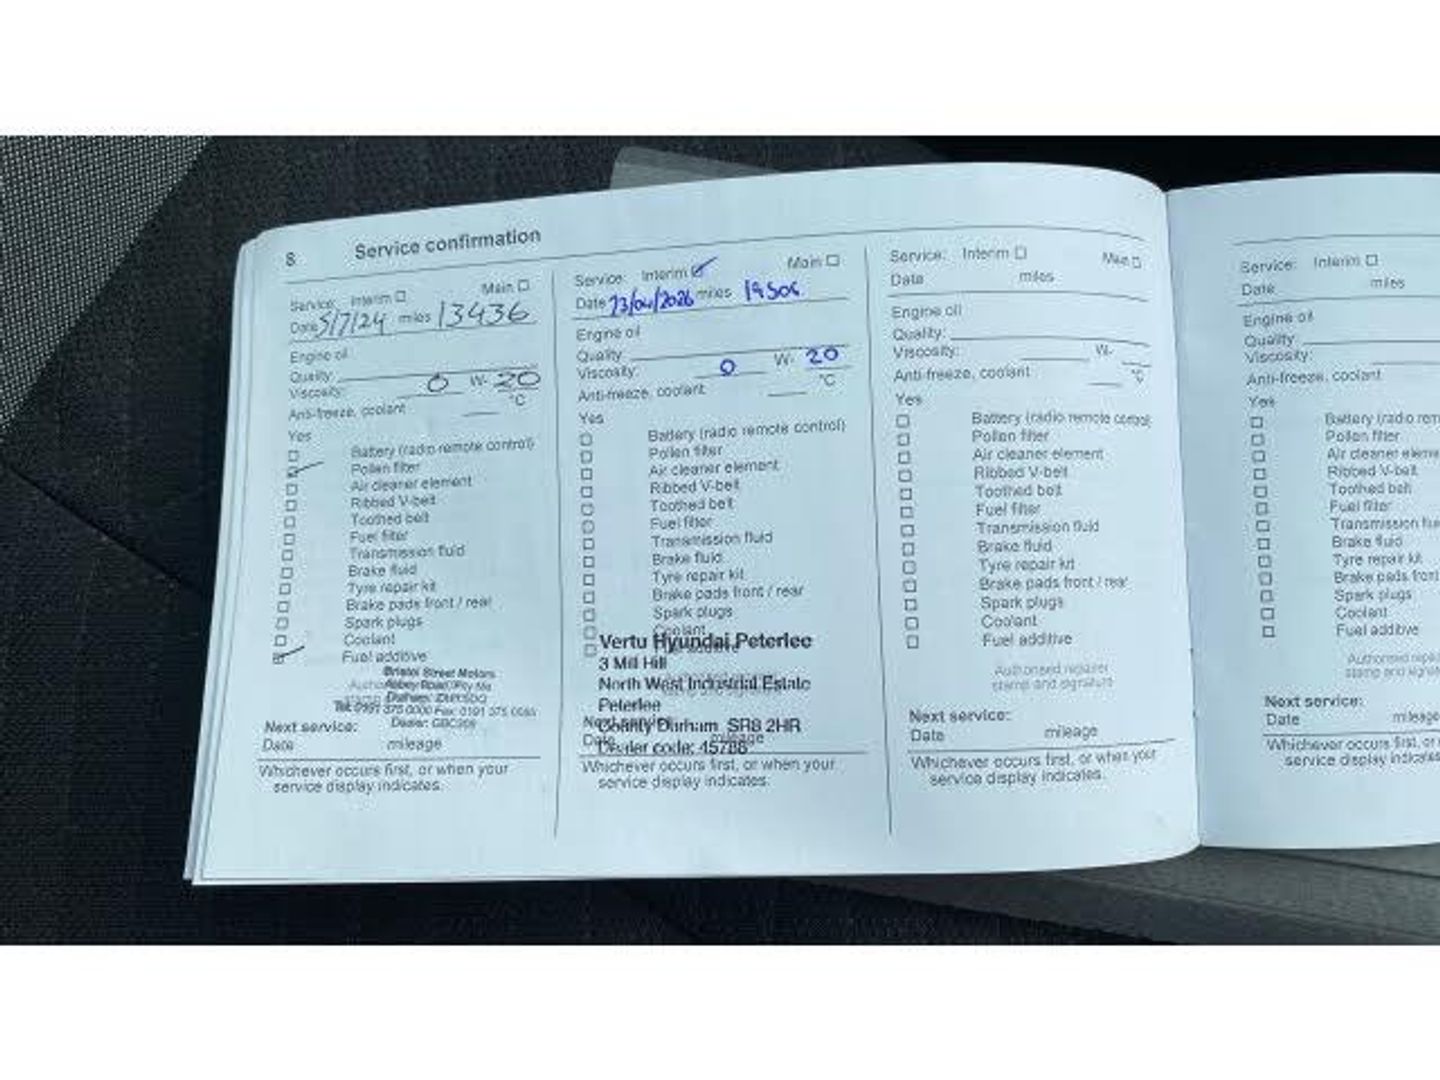 8 Service confirmation
Service: Interim Main
Date 5/7/24 miles 13436
Engine oil
Quality:
Viscosity: 0 W- 20
Anti-freeze, coolant °C
Yes
Battery (radio remote control)
Pollen filter
Air cleaner element
Ribbed V-belt
Toothed belt
Fuel filter
Transmission fluid
Brake fluid
Tyre repair kit
Brake pads front / rear
Spark plugs
Coolant
Fuel additive
Bristol Street Motors
Abbey Road, Pity Me
Durham
Tel: 0191 375 0000 Fax: 0191 375
Dealer:
Next service:
Date mileage
Whichever occurs first, or when your
service display indicates.
Service: Interim Main
Date 23/04/2026 miles
Engine oil
Quality:
Viscosity: 0 W- 20
Anti-freeze, coolant °C
Yes
Battery (radio remote control)
Pollen filter
Air cleaner element
Ribbed V-belt
Toothed belt
Fuel filter
Transmission fluid
Brake fluid
Tyre repair kit
Brake pads front / rear
Spark plugs
Coolant
Vertu Hyundai Peterlee
3 Mill Hill
North West Industrial Estate
Peterlee
County Durham SR8 2HR
Dealer code: 45788
Next service:
Date mileage
Whichever occurs first, or when your
service display indicates.
Service: Interim Main
Date miles
Engine oil
Quality:
Viscosity: W-
Anti-freeze, coolant °C
Yes
Battery (radio remote control)
Pollen filter
Air cleaner element
Ribbed V-belt
Toothed belt
Fuel filter
Transmission fluid
Brake fluid
Tyre repair kit
Brake pads front / rear
Spark plugs
Coolant
Fuel additive
Authorised repairer
stamp and signature
Next service:
Date mileage
Whichever occurs first, or when your
service display indicates.
Service: Interim
Date miles
Engine oil
Quality:
Viscosity:
Anti-freeze, coolant
Yes
Battery (radio rem
Pollen filter
Air cleaner eleme
Ribbed V-belt
Toothed belt
Fuel filter
Transmission flui
Brake fluid
Tyre repair kit
Brake pads front
Spark plugs
Coolant
Fuel additive
Authorised repai
stamp and signatu
Next service:
Date mileage
Whichever occurs first, or
service display indicates